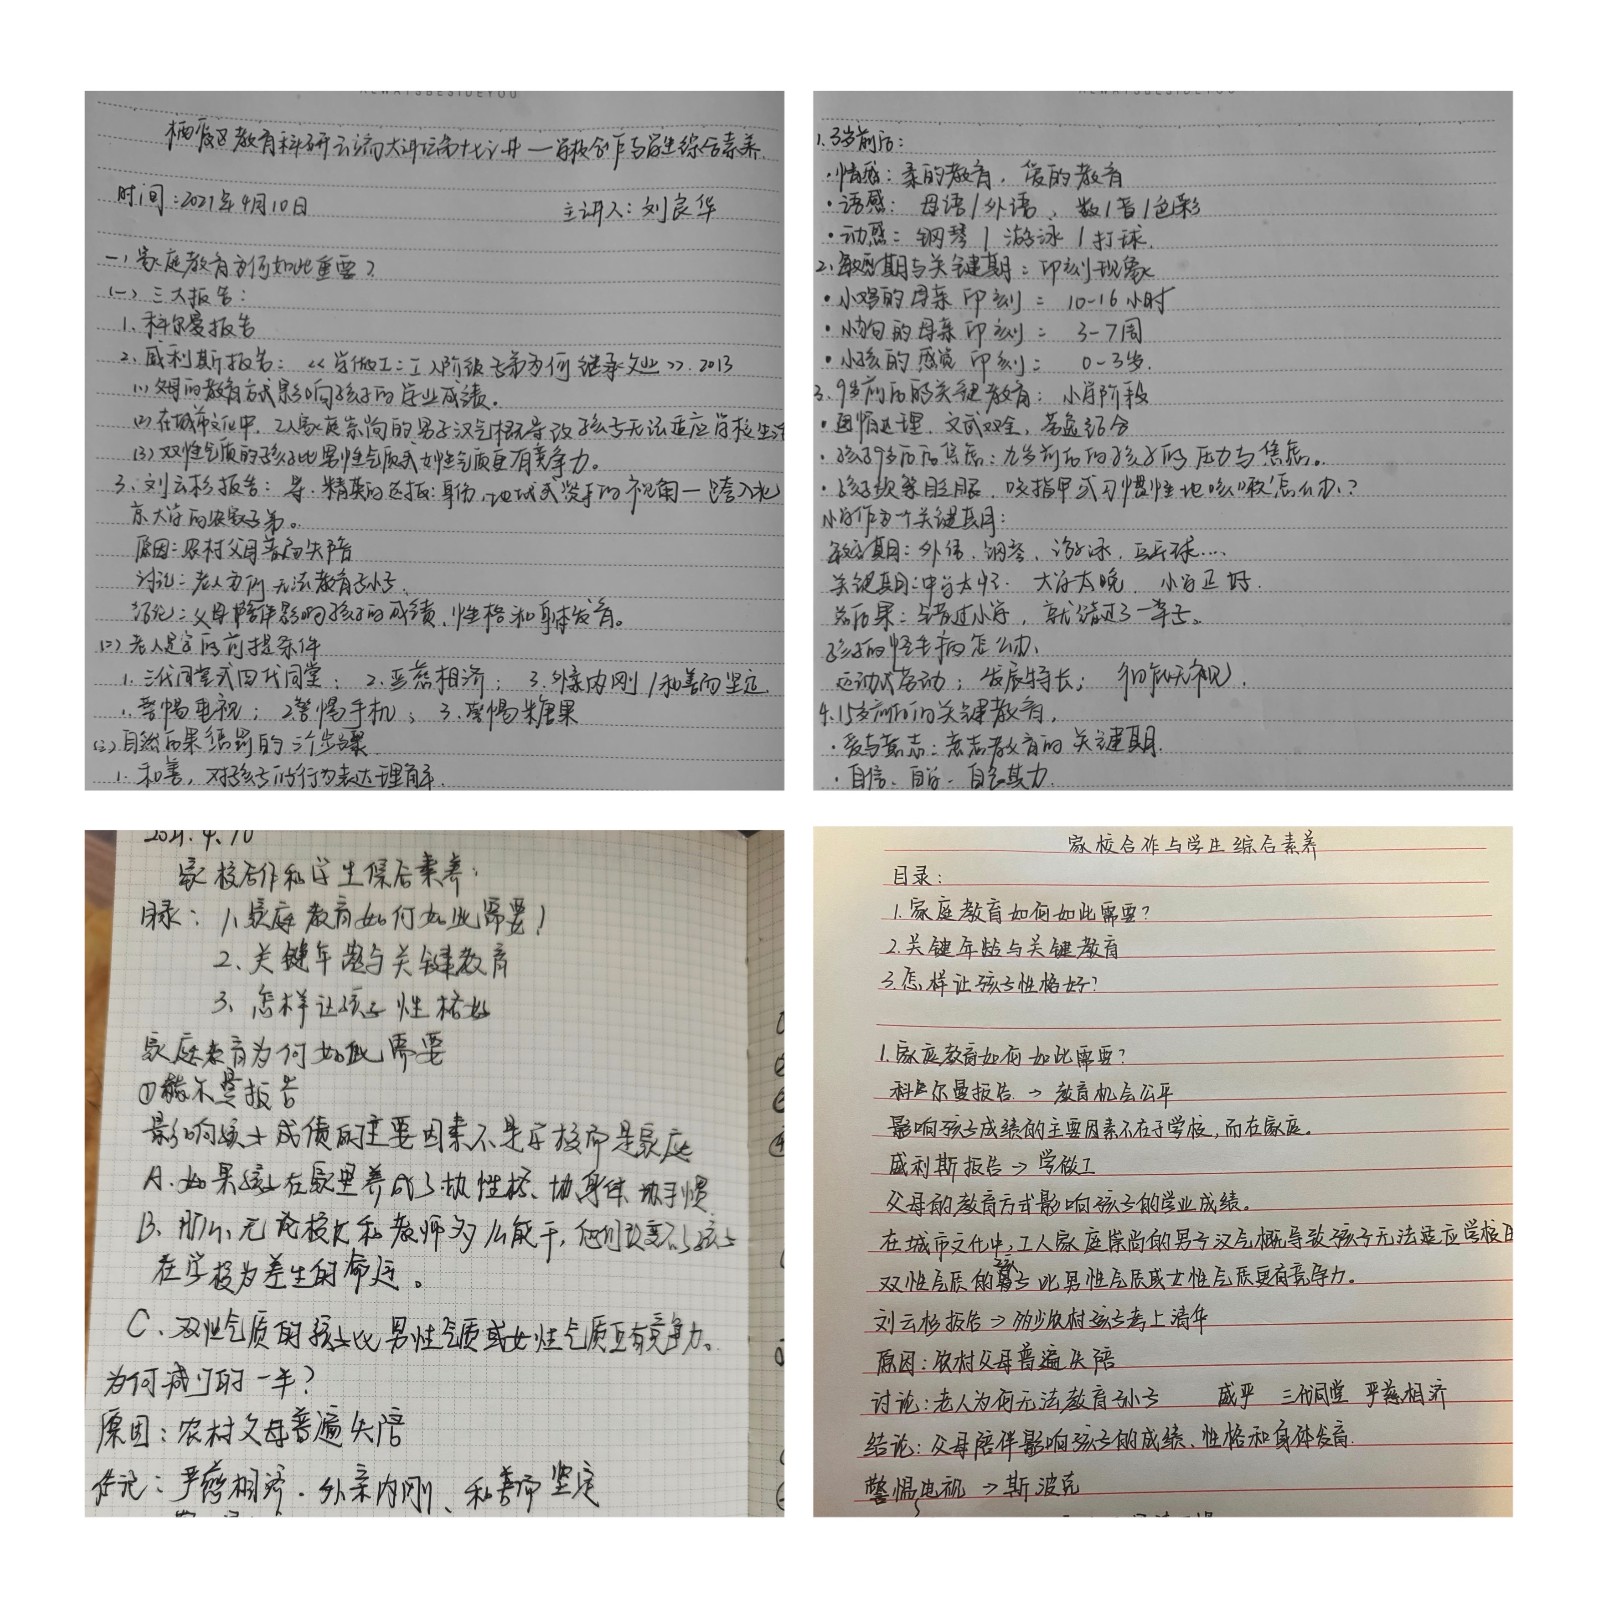 ALWAYSBESIDEYOU
栖霞区教育科研云端大讲坛第十七讲—学校合作与学生综合素养
时间:2021年4月10日 主讲人:刘良华
一、家庭教育为何如此重要?
(一)三大报告:
1.科尔曼报告
2.威利斯报告:《学做工:工人阶级子弟为何继承父业》.2013
(1)父母的教育方式影响孩子的学业成绩。
(2)在城市文化中,工人家庭崇尚的男子汉气概导致孩子无法适应学校生活
(3)双性气质的孩子比男性气质或女性气质更有竞争力。
3.刘云杉报告:寻.精英的选拔:身份,地域或资本的视角—跨入北
京大学的农家子弟。
原因:农村父母普遍失陪
讨论:老人为何无法教育孙子。
结论:父母陪伴影响孩子的成绩,性格和身体发育。
(二)老人是宝的前提条件
1.三代同堂或四代同堂; 2.严慈相济; 3.外亲内刚/和善而坚定.
1.警惕电视; 2.警惕手机; 3.警惕糖果
(三)自然后果惩罚的三个步骤
1.和善,对孩子的行为表达理解.
ALWAYSBESIDEYOU
1.3岁前后:
·情感:柔的教育.
·语感:母语/外语、数/音/色彩
·动感:钢琴/游泳/打球.
2.敏感期与关键期:印刻现象
·小鸡的母亲印刻: 10-16小时
·小狗的母亲印刻: 3-7周
·小孩的感觉印刻: 0-3岁.
3.9岁前后的关键教育:小学阶段
·因情处理.文武双全,劳逸结合
·孩子9岁后后焦虑:九岁前后的孩子的压力与焦虑。
·孩子频繁眨眼.咬指甲或习惯性地咳嗽怎么办?
小学作为一个关键期:
敏感期:外语.钢琴.游泳.乒乓球....
关键期:中学太忙.大学太晚.小学正好.
总后果:错过小学,就错过了一辈子。
孩子的怪毛病怎么办、
运动或劳动;发展特长;
4.15岁前后的关键教育,
·爱与意志:意志教育的关键期.
·自信、自学、自食其力.
2021.4.10
家校合作和学生综合素养:
目录:1、家庭教育如何如此需要!
2、关键年龄与关键教育
3、怎样让孩子性格好
家庭教育为何如此需要
①科尔曼报告
影响孩子成绩的主要因素不是学校而是家庭
A.如果孩子在家里养成了坏性格、坏身体、坏习惯
B、那么,无论校长和教师多么能干,他们改变不了孩子
在学校为差生的命运。
C、双性气质的孩子比男性气质或女性气质更有竞争力。
为何减少的一半?
原因:农村父母普遍失陪
传记:严慈相济.外亲内刚、和善而坚定
家校合作与学生综合素养
目录:
1.家庭教育如何如此需要?
2.关键年龄与关键教育
3.怎样让孩子性格好?
1.家庭教育如何如此需要?
科尔曼报告→教育机会公平
影响孩子成绩的主要因素不在于学校,而在家庭。
威利斯报告→学做工
父母的教育方式影响孩子的学业成绩。
在城市文化中,工人家庭崇尚的男子汉气概导致孩子无法适应学校
双性气质的孩子比男性气质或女性气质更有竞争力。
刘云杉报告→多少农村孩子考上清华
原因:农村父母普遍失陪
讨论:老人为何无法教育孙子 威严 三代同堂 严慈相济
结论:父母陪伴影响孩子的成绩、性格和身体发育.
警惕电视→斯波克